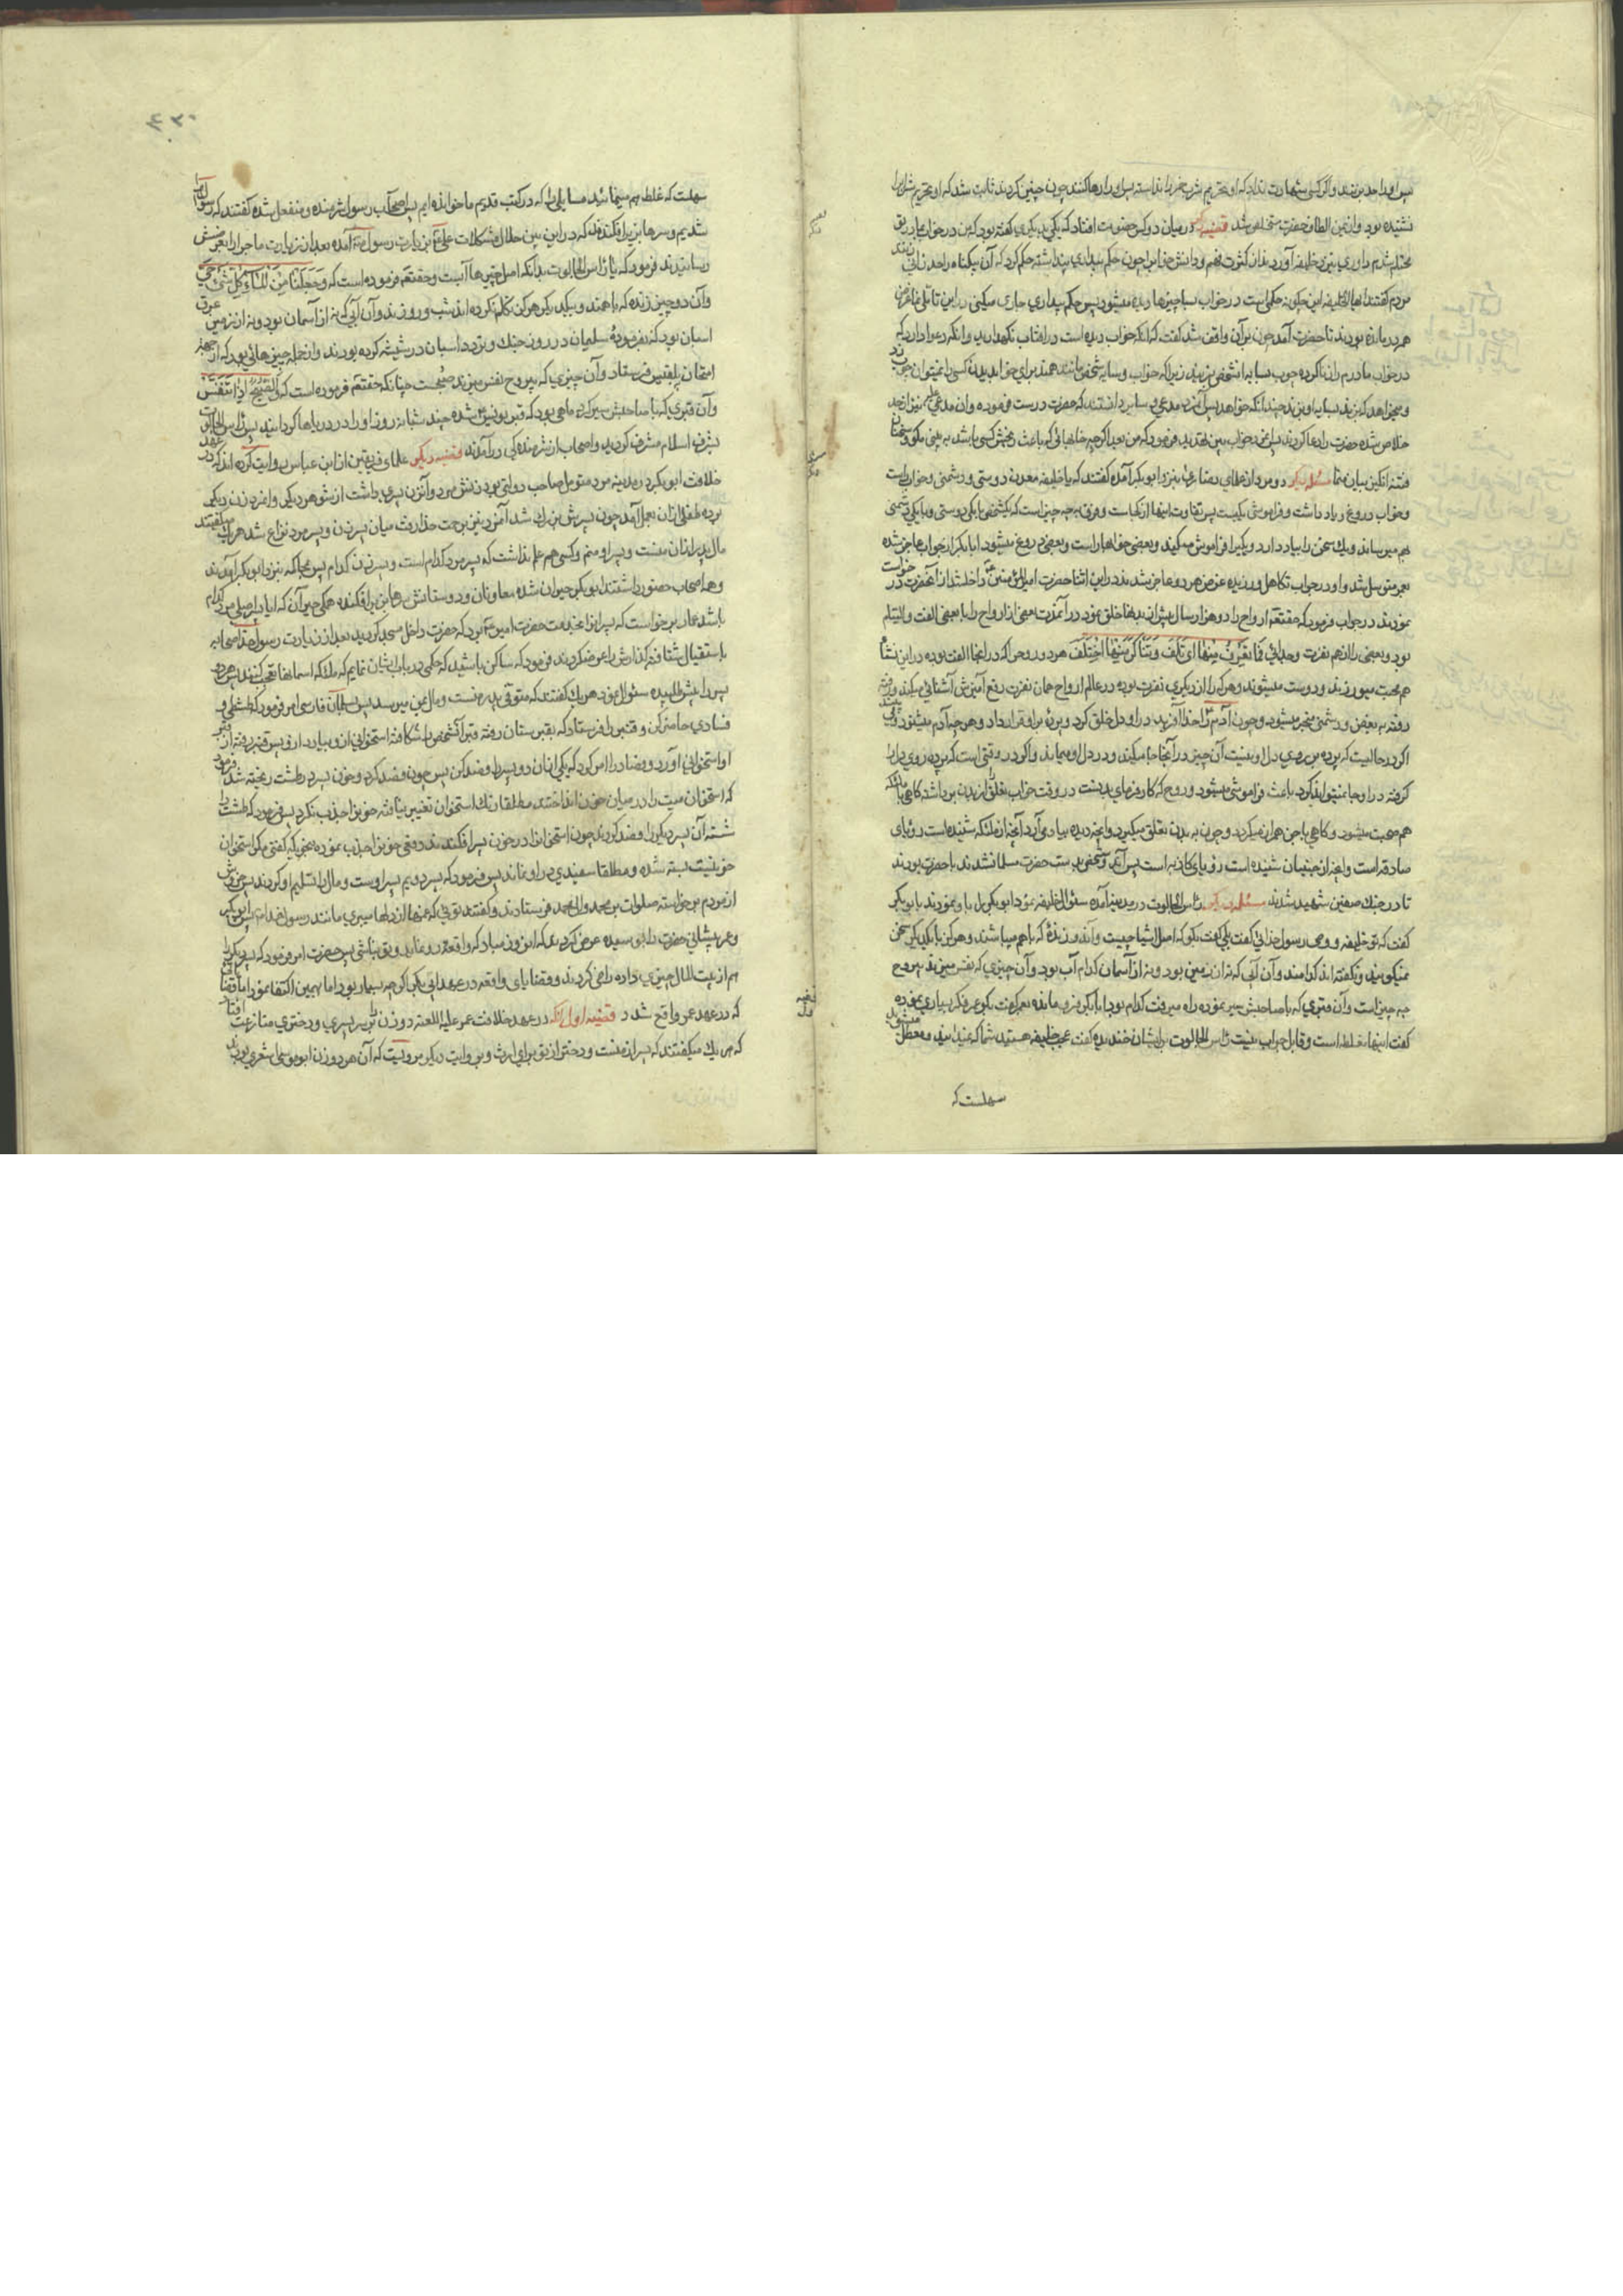 پس او را حد بزنند و اگر کسی شهادت نداد که او تحریم شرب خمر را ندانسته پس او را رها کنند چون چنین کردند ثابت شد که او تحریم شراب را
نشنیده بود و از یمن الطاف حضرت مستخلص شد قضیه دیگر در میان دو کس خصومت افتاد که یکی به دیگری گفته بود که من در خواب با مادر تو
محتلم شدم داوری بنزد خلیفه آورد بنا بر کثرت فهم و دانش خواب را چون حکم بیداری پنداشته حکم کرد که آن بیگناه را حد زنا بزنند
مردم گفتند ایها الخلیفه این چگونه حکم است در خواب بسا چیزها دیده میشود پس حکم بیداری جاری میکنی در این تأمل
همه درمانده بودند تا حضرت آمد چون بر آن واقف شد گفت که آنکه خواب دیده است در آفتاب نگهدارید و آنکه دعوا دارد که
در خواب با مادرم زنا کرده چوب بسایه آن شخص بزنید زیرا که خواب و سایه شخص مانند همند برای خواب دیدن کسی را نمیتوان حد زد
و میخواهد که بزند بسایه او بزند چندانکه خواهد پس آن مرد مدعی و سایر دانستند که حضرت درست فرموده و آن مدعی علیه نیز از حد
خلاص شده حضرت را دعا کردند فرمود که من بعد اگر چه خوابهائی که باعث رنجش کسی باشد به یمنی مگو و سخنان
فتنه انگیز بیان منما مسئله دیگر دو مرد از علمای نصارا بنزد ابو بکر آمده گفتند که یا خلیفه معدن دوستی و دشمنی و خواب راست
و خواب دروغ و یاد داشت و فراموشی یکیست پس تفاوت اینها از کجاست و فرق بچه چیز است که یک شخص با یکی دوستی و با یکی دشمنی
بهم میرساند و یک سخن را بیاد دارد و یکی را فراموش میکند و بعضی خوابها راست و بعضی دروغ میشود ابا بکر از جواب عاجز شده
بعمر متوسل شد و او در جواب تکاهل ورزیده غرض هر دو عاجز شدند در این اثنا حضرت امیر المؤمنین ع داخل شد از آنحضرت در خواست
نمودند در جواب فرمود که حقتعه ارواح را دو هزار سال پیش از بدنها خلق نمود در آن مدت بعضی از ارواح را با بعضی الفت و التیام
بود و بعضی را از هم نفرت و جدائی فَمَا تَعَرَفَ مِنْهَا اِئْتَلَفَ وَ مَا تَنَاکَرَ مِنْهَا اخْتَلَفَ هر دو روحی را که در اینجا الفت بوده در این نشأ
هم محبت میورزند و دوست میشوند و هر که را از دیگری نفرت بوده در عالم ارواح همان نفرت رفع آمیزش آشنائی میکند و رفته
رفته به بغض و دشمنی منجر میشود و چون آدم ع را خدا آفرید در او دل خلق کرد و پرده بر او قرار داد و هر چه بآدم میشنود وقتی
اگر در حالیست که پرده بر روی دل او نیست آن چیز در آنجا جا میکند و در دل او میماند و اگر در وقتی است که پرده روی دل را
گرفته در او جا نمیتواند کرد باعث فراموشی میشود و روح که کار فرمای بدنست در وقت خواب تعلق را از بدن برداشته گاهی با ملائکه
هم صحبت میشود و گاهی با جن همراز میگردد و چون به بدن تعلق میگیرد و آنچه دیده بیاد می آرد آنچه از ملائکه شنیده است رؤیای
صادقه است و آنچه از جنیان شنیده است رؤیای کاذبه است پس آن دو شخص بر دست حضرت مسلمان شدند با حضرت بودند
تا در جنگ صفین شهید شدند مسئله دیگر رأس الجالوت در مدینه آمده سئوال خلیفه نمود ابو بکر را باو نمودند بابو بکر
گفت که تو خلیفه و وصی رسول خدائی گفت بلی گفت بگو که اصل اشیا چیست و آن دو زنده که با هم میباشند و هرگز با یکدیگر سخن
نمیگویند و نگفته اند کدامند و آن آبی که نه از زمین بود و نه از آسمان کدام آب بود و آن چیزی که نفس میزند بی روح
چه چیز است و آن قبری که با صاحبش سیر نموده راه میرفت کدام بود ابا بکر فرو مانده بعمر گفت بگو عمر فکر بسیاری نموده
گفت اینها غلط است و قابل جواب نیست رأس الجالوت بر ایشان خندیده گفت عجب خلیفه هستید شما که نمیدانید و معطل میشوید
سهلست که
سهلست که غلط هم میخوانید مسایلی را که در کتب قدیم ما خوانده ایم پس اصحاب رسول شرمنده و منفعل شده گفتند که رسوا
شدیم و سرها بزیر افکنده که در این بین حلال مشکلات علی ع بزیارت رسول ص آمده بعد از زیارت ماجرا را بعرضش
رسانیدند فرمود که یا رأس الجالوت بدانکه اصل چیزها آبست و حقتعه فرموده است که وَ جَعَلْنَا مِنَ الْمَاءِ کُلَّ شَیْءٍ حَیٍّ
و آن دو چیز زنده که با همند و بیکدیگر هرگز تکلم نکرده اند شب و روزند و آن آبی که نه از آسمان بود و نه از زمین عرق
اسبان بود که بفرموده سلیمان در روز جنگ و تردد اسبان در شیشه کرده بودند و از جمله چیزهائی بود که از جهة
امتحان بلقیس فرستاد و آن چیزی که بی روح نفس میزند صبحست چنانکه حقتعه فرموده است که وَالصُّبْحِ اِذَا تَنَفَّسَ
و آن قبری که با صاحبش سیر کرد ماهی بود که قبر یونس ع شده چند شبانه روز او را در دریاها گردانید پس رأس الجالوت
بشرف اسلام مشرف گردید و اصحاب از شرمندگی در آمدند قضیه دیگر علمای فریقین از ابن عباس روایت کرده اند که در عهد
خلافت ابو بکر در مدینه مرد متمول صاحب دولتی بود زنش مرد و آن زن پسری داشت از شوهر دیگر و آنمرد زن دیگر
برده طفلی از آن بعمل آمد چون پسرش بزرگ شد آنمرد نیز برحمت خدا رفت میان پسر زن و پسر مرد نزاع شد هر یک میگفتند
مال پدر از آن منست و پسر او منم و کسی هم علم نداشت که پسر مرد کدام است و پسر زن کدام پس بمحاکمه بنزد ابو بکر آمدند
و همه اصحاب حضور داشتند ابو بکر حیران شده معاونان و دوستانش سرها بزیر افکنده همگی حیران که آیا پسر اصلی مرد کدام
باشد عمار برخواست که پسران را بخدمت حضرت امیر ع برد که حضرت داخل مسجد گردید بعد از زیارت رسول خدا صحابه
باستقبال شتافته گذارش را عرض کردند فرمود که ساکن باشید که حکمی در باره ایشان نمایم که ملائکه آسمانها تعجب کنند پس هر دو
پسر را پیش طلبیده سئوال نمود هر یک گفتند که متوفی پدر منست و مال بمن میرسد پس سلمان فارسی امر فرمود که طشتی و
فصادی حاضر کن و قنبر را فرستاد که بقبرستان رفته قبر آن شخص را شکافته استخوانی از او بیارد او پس قنبر رفته از قبر
او استخوانی آورد و فصاد را امر کرد که یکی از آن دو پسر را فصد کن پس چون فصد کرد و خون پسر در طشت ریخته شد فرمود
که استخوان میت را در میان خون انداختند مطلقا رنگ استخوان تغییر نیافته خون را جذب نکرد پس فرمود که طشت را
شسته آن پسر دیگر را فصد کردند چون استخوان را در خون پسر افکندند دفعی خون را جذب نموده بنحویکه گفتی مگر استخوان
خونیست بسته شده و مطلقا سفیدی در او نماند پس فرمود که پسر دویم پسر اوست و مال را تسلیم او کردند پس خروش
از مردم برخواسته صلوات بر محمد و آل محمد فرستادند و گفتند توئی که غمها از دلها میبری مانند رسول خدا پس ابو بکر
و عمر پیشانی حضرت را بوسیده عرض کردند که این روز مباد که واقعه رو نماید و تو نباشی پس حضرت امر فرمود که پسر دیگر را
هم از بیت المال چیزی داده راضی کردند و قضایای واقعه در عهد ابی بکر اگر چه بسیار بود اما بهمین اکتفا نمود اما قضایا
که در عهد عمر واقع شد قضیه اول آنکه در عهد خلافت عمر علیه اللعنه دو زن بر سر پسری و دختری منازعت افتاد
که هر یک میگفتند که پسر از منست و دختر از تو برای ارث و بروایت دیگر مرویست که آن هر دو زن ابو موسی اشعری بودند